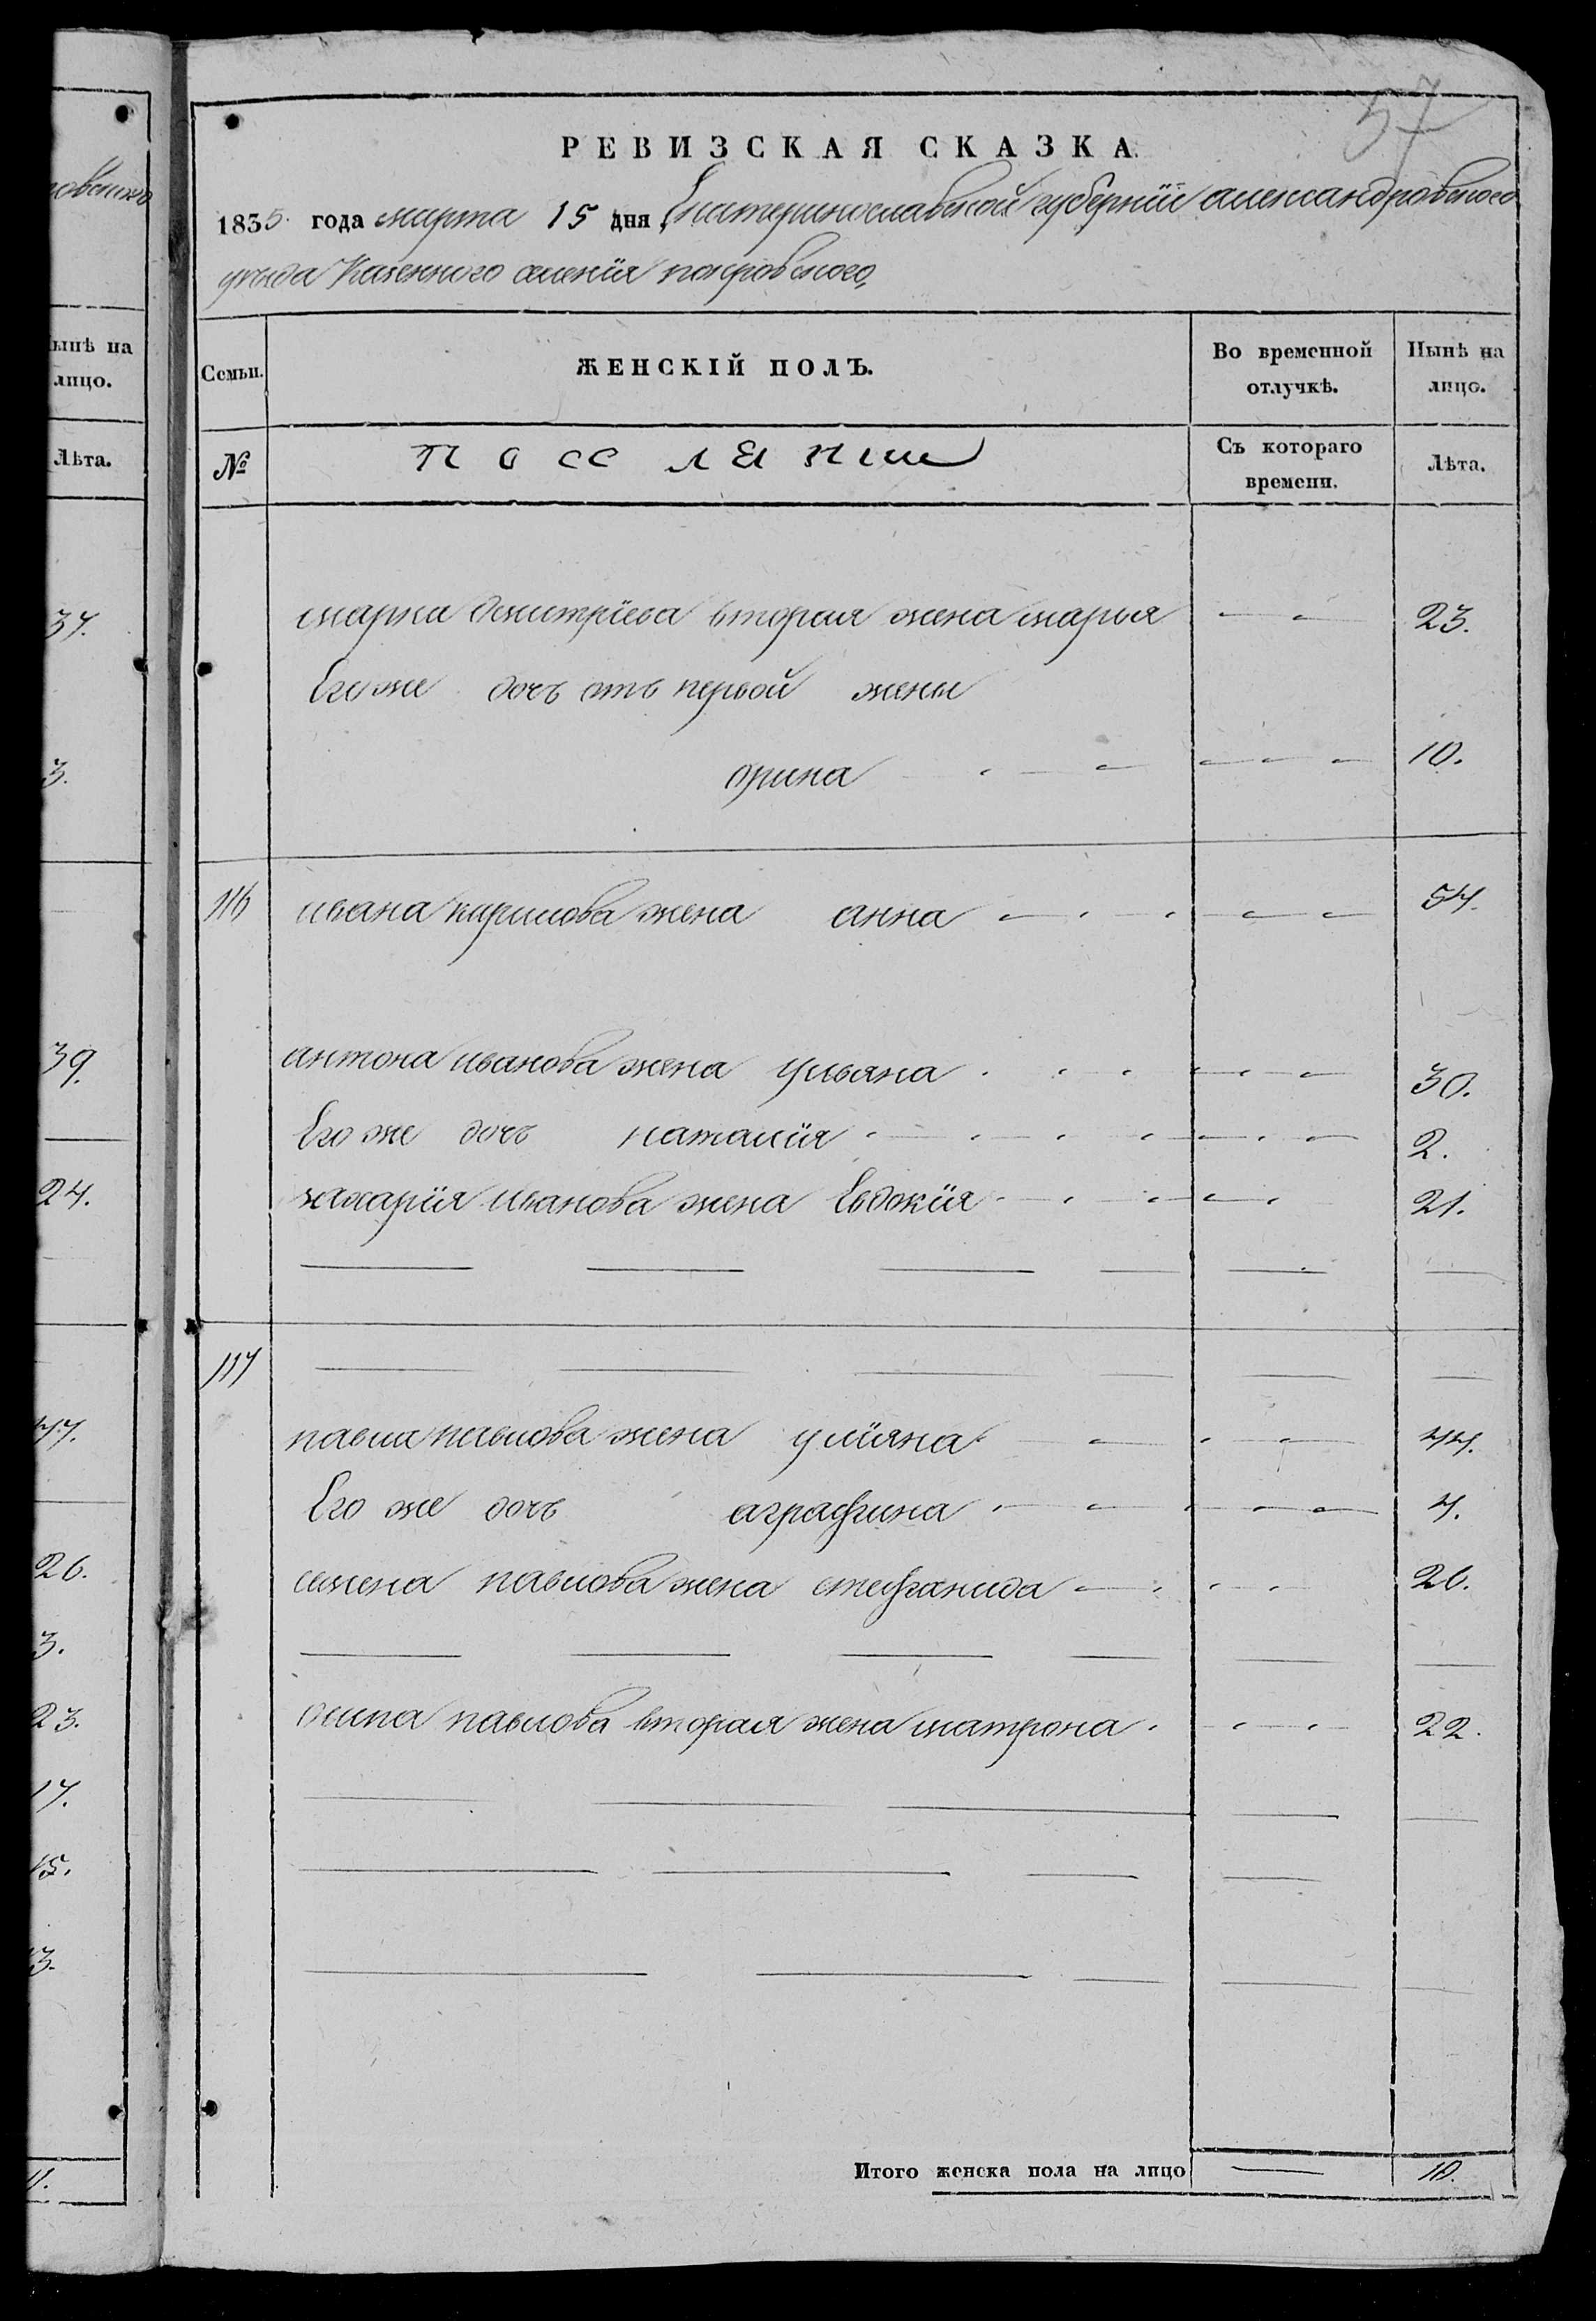 57
РЕВИЗСКАЯ СКАЗКА.
1835 года марта 15 дня Екатеринославской губернїи александровского
уезда Казенного селенїя покровского,
Семьи. ЖЕНСКІЙ ПОЛЪ. Во временной отлучкѣ. Нынѣ на лицо.
№ Съ котораго времени. Лѣта.
марка дмитрїева вторая жена марья 23.
Его же дочь отъ первой жены
орина 10.
116 ивана кирилова жена анна 54.
антона иванова жена ульяна 30.
Его же дочь наталїя 2.
захарїя иванова жена Евдокїя 21.
117
павла павлова жена улїяна 44.
Его же дочь аграфина 4.
семена павлова жена стефанида 26.
осипа павлова вторая жена матрона 22.
Итого женска пола на лицо 10.
ынѣ на
лицо.
Лѣта.
37.
3.
39.
24.
47.
26.
3.
23.
17.
15.
13.
11.